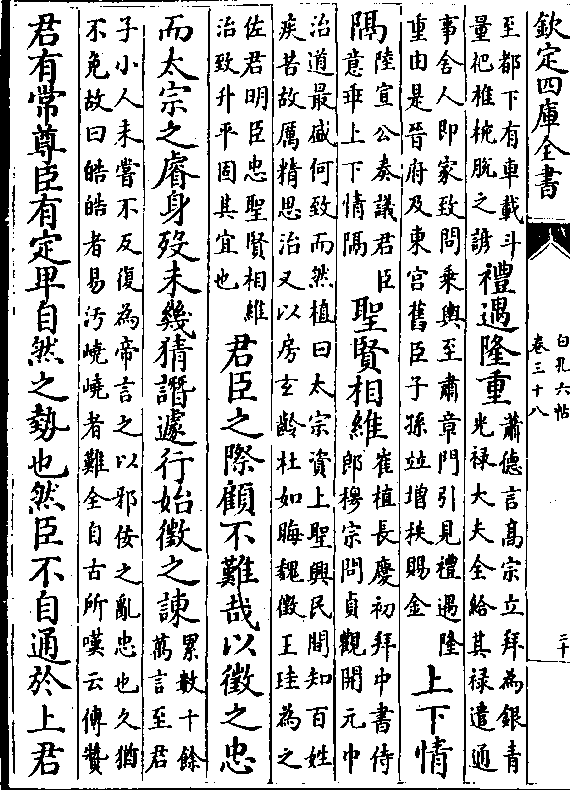 欽定四庫全書
白孔六帖
卷三十八
二十
至都下有車載斗
量杷椎椀脫之諺
禮遇隆重
蕭德言高宗立拜為銀青
光禄大夫全給其禄遣通
事舍人即家致問乗輿至肅章門引見禮遇隆
重由是晉府及東宫舊臣子孫竝増秩賜金
上下情
隔
陸宣公奏議君臣
意乖上下情隔
聖賢相維
崔植長慶初拜中書侍
郎穆宗問貞觀開元中
治道最盛何致而然植曰太宗資上聖興民間知百姓
疾苦故厲精思治又以房玄齡杜如晦魏徵王珪為之
佐君明臣忠聖賢相維
治致升平固其宜也
君臣之際顧不難哉以徵之忠
而太宗之睿身歿未幾猜譖遽行始徵之諫
累數十餘
萬言至君
子小人未嘗不反復為帝言之以邪佞之亂忠也久猶
不免故曰皓皓者易汚嶢嶢者難全自古所嘆云傳贊
君有常尊臣有定卑自然之勢也然臣不自通於上君